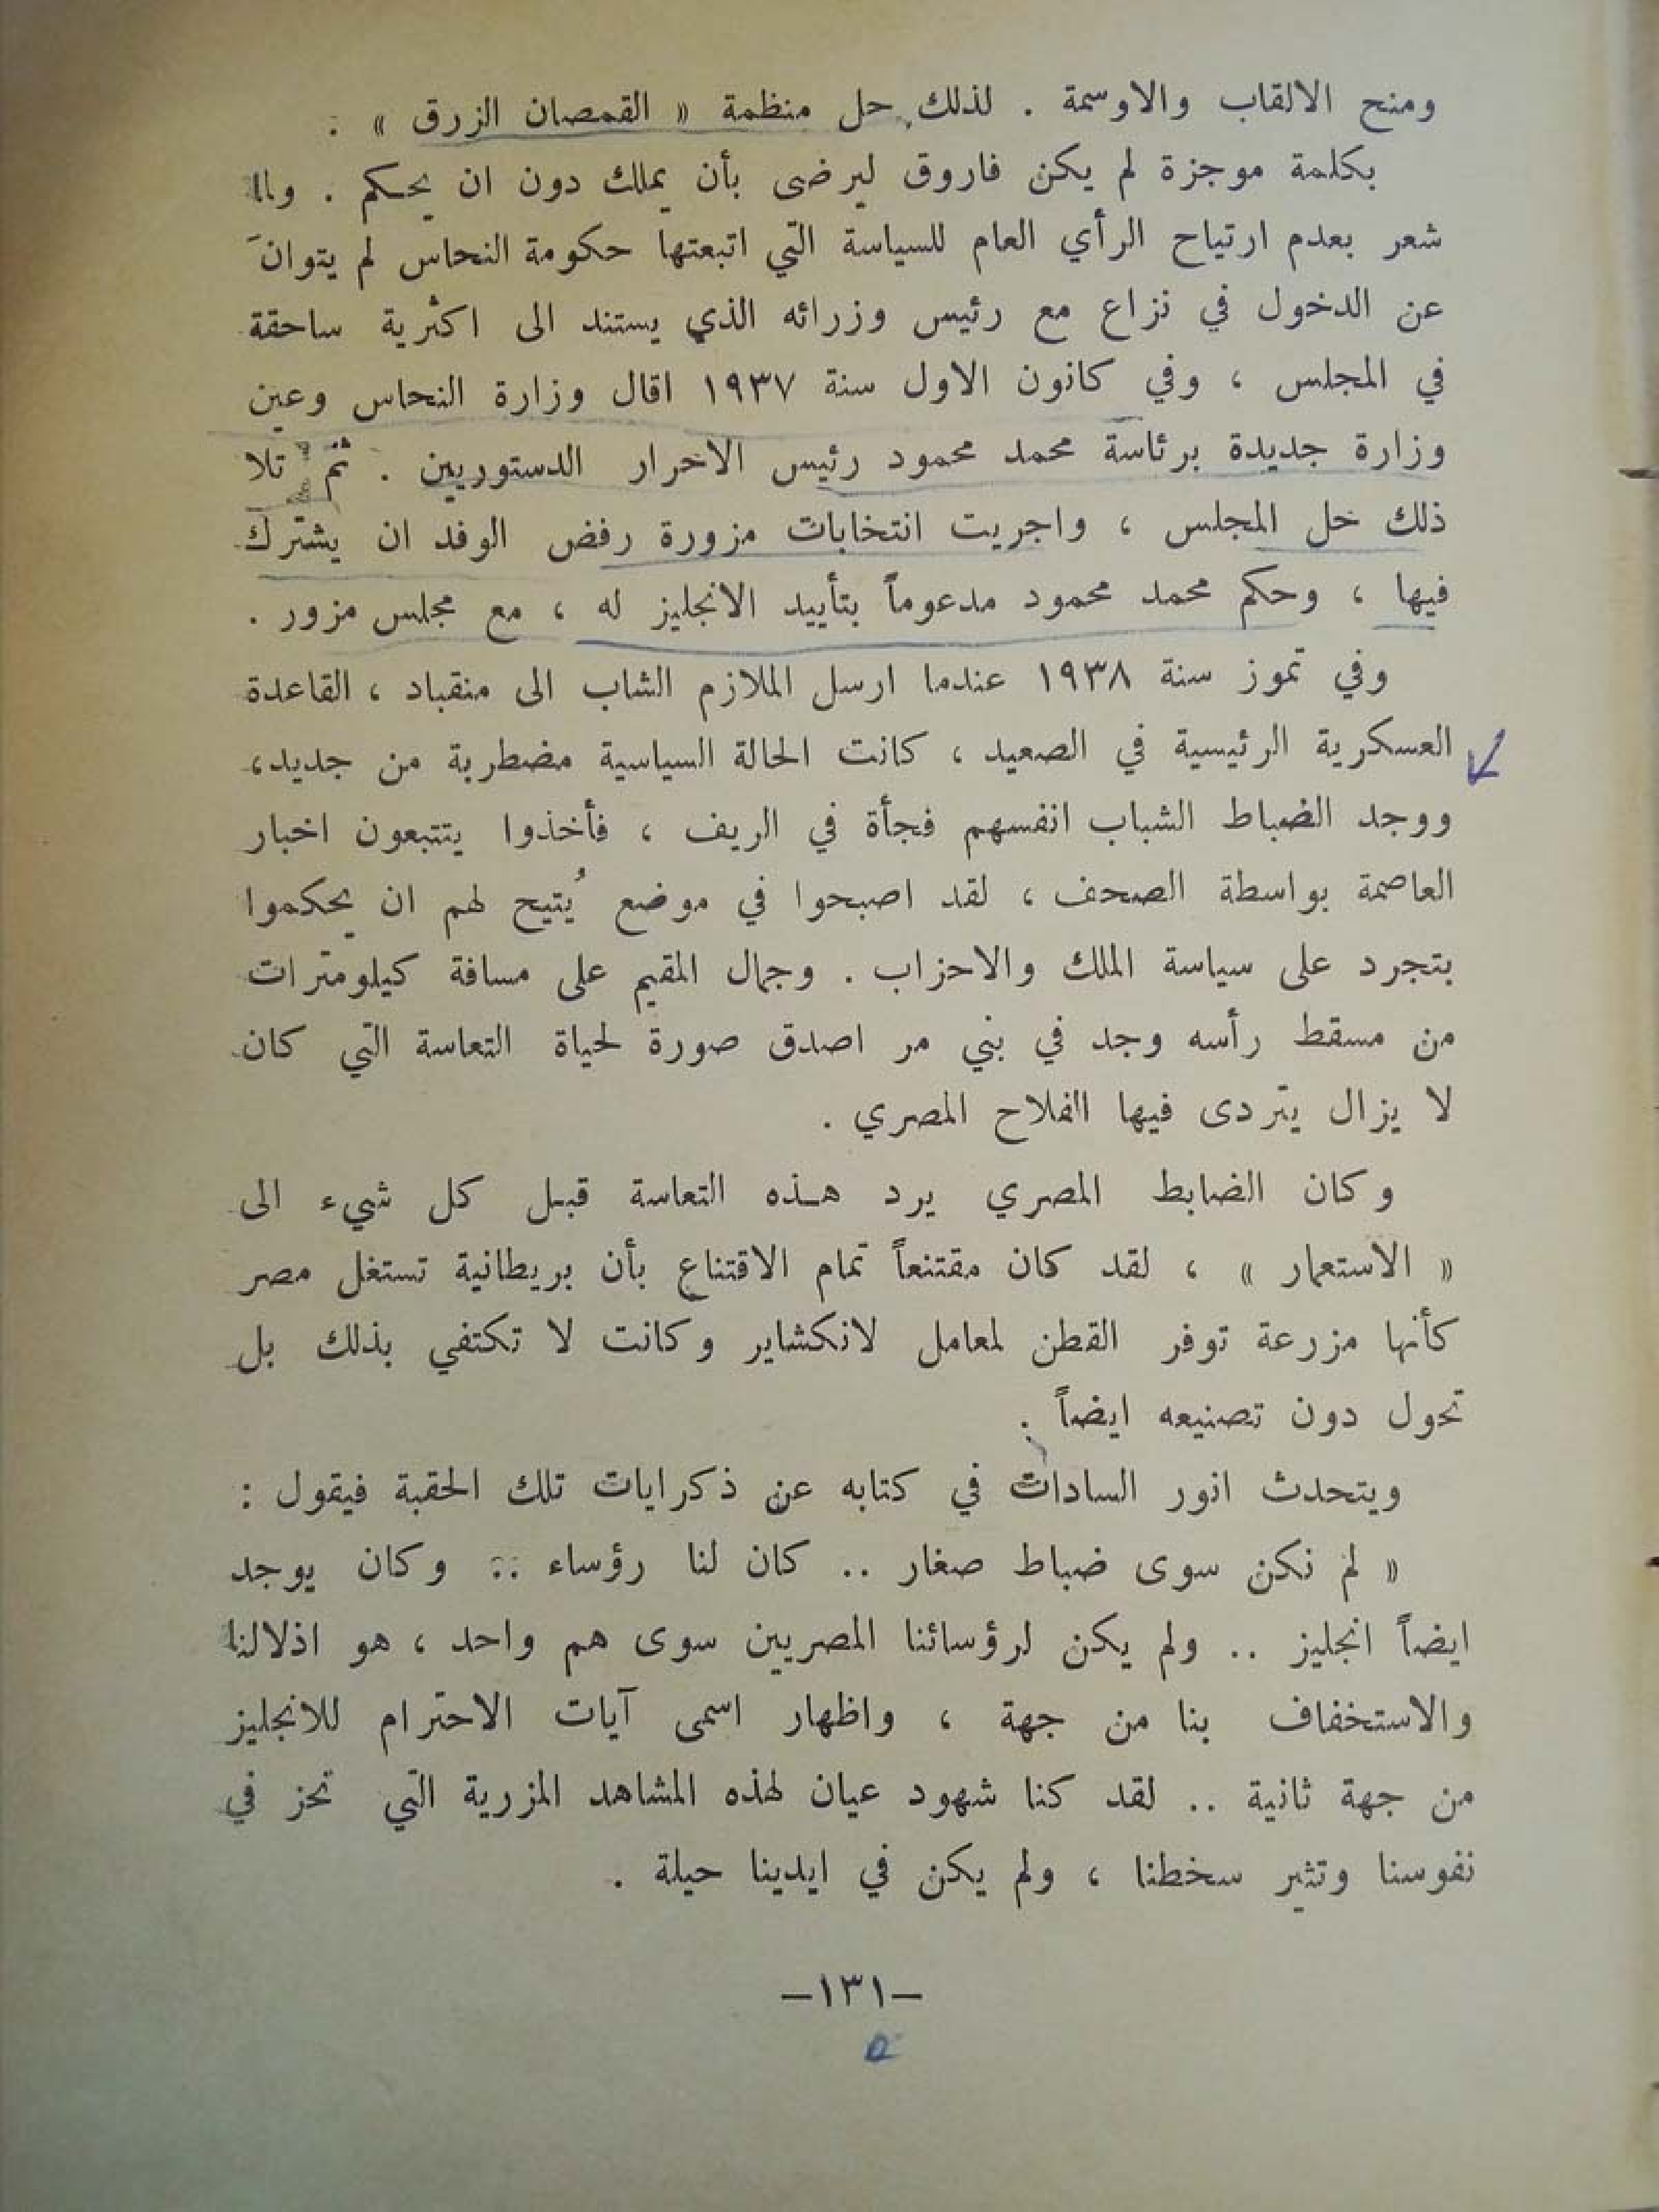 ومنح الالقاب والاوسمة . لذلك حل منظمة « القمصان الزرق » .
بكلمة موجزة لم يكن فاروق ليرضى بأن يملك دون ان يحكم . ولما
شعر بعدم ارتياح الرأي العام للسياسة التي اتبعتها حكومة النحاس لم يتوانَ
عن الدخول في نزاع مع رئيس وزرائه الذي يستند الى اكثرية ساحقة
في المجلس ، وفي كانون الاول سنة ١٩٣٧ اقال وزارة النحاس وعين
وزارة جديدة برئاسة محمد محمود رئيس الاحرار الدستوريين . ثم تلا
ذلك حل المجلس ، واجريت انتخابات مزورة رفض الوفد ان يشترك
فيها ، وحكم محمد محمود مدعوماً بتأييد الانجليز له ، مع مجلس مزور .
وفي تموز سنة ١٩٣٨ عندما ارسل الملازم الشاب الى منقباد ، القاعدة
العسكرية الرئيسية في الصعيد ، كانت الحالة السياسية مضطربة من جديد،
ووجد الضباط الشباب انفسهم فجأة في الريف ، فأخذوا يتتبعون اخبار
العاصمة بواسطة الصحف ، لقد اصبحوا في موضع يُتيح لهم ان يحكموا
بتجرد على سياسة الملك والاحزاب . وجمال المقيم على مسافة كيلومترات
من مسقط رأسه وجد في بني مر اصدق صورة لحياة التعاسة التي كان
لا يزال يتردى فيها الفلاح المصري .
وكان الضابط المصري يرد هذه التعاسة قبل كل شيء الى
« الاستعمار » ، لقد كان مقتنعاً تمام الاقتناع بأن بريطانية تستغل مصر
كأنها مزرعة توفر القطن لمعامل لانكشاير وكانت لا تكتفي بذلك بل
تحول دون تصنيعه ايضاً .
ويتحدث انور السادات في كتابه عن ذكرايات تلك الحقبة فيقول :
« لم نكن سوى ضباط صغار .. كان لنا رؤساء .. وكان يوجد
ايضاً انجليز .. ولم يكن لرؤسائنا المصريين سوى هم واحد ، هو اذلالنا
والاستخفاف بنا من جهة ، واظهار اسمى آيات الاحترام للانجليز
من جهة ثانية .. لقد كنا شهود عيان لهذه المشاهد المزرية التي تحز في
نفوسنا وتثير سخطنا ، ولم يكن في ايدينا حيلة .
—١٣١—